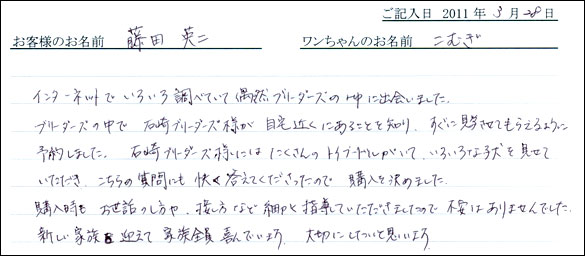 ご記入日 2011年 3月 28日
お客様のお名前 藤田 英二 ワンちゃんのお名前 こむぎ
インターネットでいろいろ調べていて偶然ブリーダーズの中に出会いました。
ブリーダーズの中で 石崎ブリーダーズ様が 自宅近くにあることを知り、すぐに見学させてもらえるように
予約しました。 石崎ブリーダーズ様にはたくさんのトイプードルがいて、いろいろな子犬を見せて
いただき、こちらの質問にも 快く答えてくださったので 購入を決めました。
購入時も お世話のし方や、接し方など 細かく指導していただきましたので 不安はありませんでした。
新しい家族を 迎えて 家族全員 喜んでいます。 大切にしたいと思います